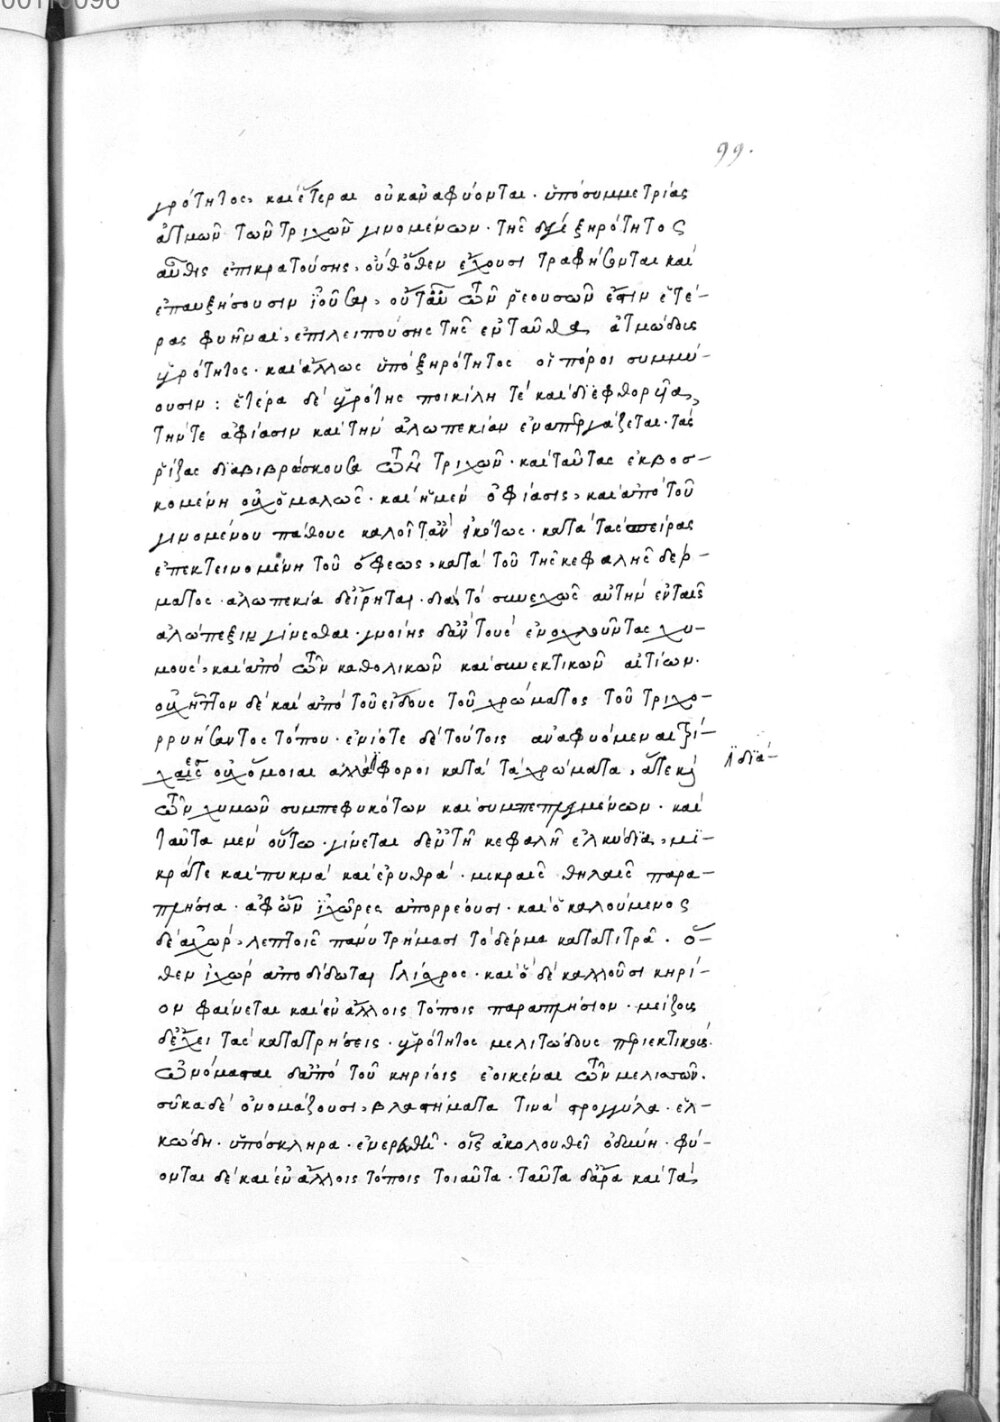 99.
γρότητος, καὶ ἕτεραι οὐκ ἀναφύονται. ὑπὸ συμμετρίας
ἀτμῶν τῶν τριχῶν γινομένων. τῆς δέ γε ξηρότητος
αὖθις ἐπικρατούσης, οὔθ' ὅθεν ἔχουσι τραφήσονται καὶ
ἐπαυξήσουσιν ἰοῦσαι, οὔτ' ἂν τῶν ῥεουσῶν ἔστιν ἑτέ-
ρας φυῆναι, ἐπιλειπούσης τῆς ἐνταῦθα ἀτμώδους
ὑγρότητος. καὶ ἄλλως ὑπὸ ξηρότητος οἱ πόροι συμμύ-
ουσιν: ἑτέρα δὲ ὑγρότης ποικίλη τὲ καὶ διεφθορυῖα,
τήν τε ὀφίασιν καὶ τὴν ἀλωπεκίαν ἐναπεργάζεται. τὰς
ῥίζας διαβιβρώσκουσα τῶν τριχῶν. καὶ ταύτας ἐκβοσ-
κομένη οὐχ ὁμαλῶς. καὶ ἡ μὲν ὀφίασις, καὶ ἀπὸ τοῦ
γινομένου πάθους καλοῖτ' ἂν εἰκότως. κατὰ τὰς σπείρας
ἐπεκτεινομένη τοῦ ὄφεως, κατὰ τοῦ τῆς κεφαλῆς δέρ-
ματος. ἀλωπεκία δ' εἴρηται. διὰ τὸ συνεχῶς αὐτὴν ἐν ταῖς
ἀλώπεξιν γίνεσθαι. γνοίης δ' ἂν τοὺς ἐνοχλοῦντας χυ-
μοὺς, καὶ ἀπὸ τῶν καθολικῶν καὶ συνεκτικῶν αἰτίων.
οὐχ ἧττον δὲ καὶ ἀπὸ τοῦ εἴδους τοῦ χρώματος τοῦ τριχο-
ρρυήσαντος τόπου. ἐνίοτε δὲ τούτοις ἀναφυόμεναι τρί-
χαι εἰς οὐχ ὅμοιαι ἀλλὰ φοροι κατὰ τὰ χρώματα, ἅτε καὶ
διά-
τῶν χυμῶν συμπεφυκότων καὶ συμπεπηγμένων. καὶ
ταῦτα μὲν οὕτω. γίνεται δ' ἐν τῇ κεφαλῇ ἑλκύδια, μι-
κρά τε καὶ πυκνὰ καὶ ἐρυθρά. μικραῖς θηλαῖς παρα-
πλήσια. ἀφ' ὧν ἰχῶρες ἀπορρέουσι. καὶ ὁ καλούμενος
δὲ ἀχὼρ, λεπτοῖς πάνυ τρήμασι τὸ δέρμα κατατιτρᾷ. ὅ-
θεν ἰχὼρ ἀποδίδοται γλίσχρος. καὶ ὃ δὲ καλοῦσι κηρί-
ον φαίνεται καὶ ἐν ἄλλοις τόποις παραπλήσιον. μείζους
δ' ἔχει τὰς κατατρήσεις. ὑγρότητος μελιτώδους περιεκτικάς.
ὠνόμασται δ' ἀπὸ τοῦ κηρίοις ἐοικέναι τῶν μελισσῶν.
σῦκα δὲ ὀνομάζουσι, βλαστήματα τινὰ στρογγύλα. ἑλ-
κώδη. ὑπόσκληρα. ἐνερευθῆ. οἷς ἀκολουθεῖ ὀδύνη. φύ-
ονται δὲ καὶ ἐν ἄλλοις τόποις τοιαῦτα. ταῦτα δ' ἄρα καὶ τὰ